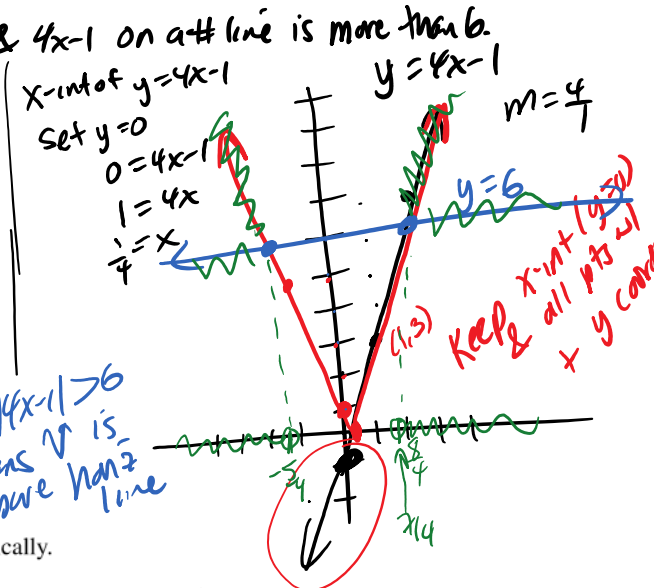 & 4x-1 on a # line is more than 6.
x-int of y=4x-1
set y=0
0=4x-1
1=4x
1/4=x
y=4x-1
m=4/1
y=6
(1,3)
Keep x-int (y=0)
& all pts w/
+ y coord
|4x-1|>6
ns V is
above horiz
line
-5/4
8/4
7/4
cally.